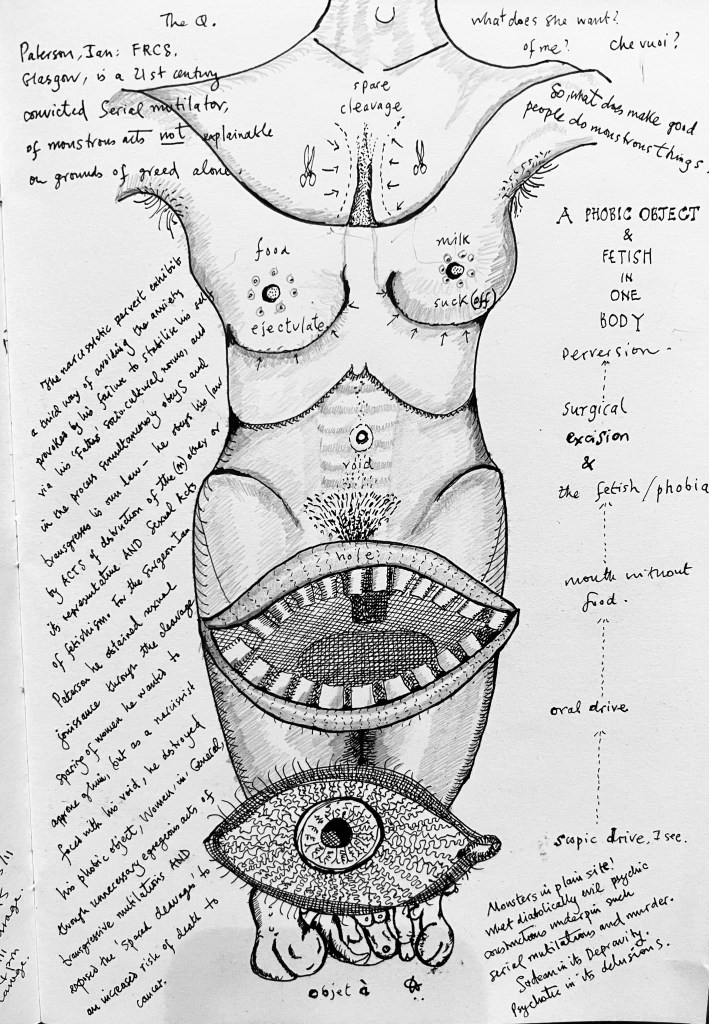 The Q.
Paterson, Ian: FRCS.
Glasgow, is a 21st century
convicted Serial mutilator,
of monstrous acts not explainable
on grounds of greed alone.
what does she want?
of me? che vuoi?
So, what does make good
people do monstrous things.
spare
cleavage
food
ejectulate
milk
suck (off)
void
hole
A PHOBIC OBJECT
&
FETISH
IN
ONE
BODY
perversion.
surgical
excision
&
the fetish/phobia
mouth without
food.
oral drive
scopic drive, I see.
The narcissistic pervert exhibits
a brief way of avoiding the anxiety
provoked by his failure to stabilise his
via his 'Fatus' socio-cultural norms, and
in the process simultaneously obeys and
transgresses is own Law - he obeys his law
by ACTS of destruction of the (m)other or
its representative AND Sexual Acts
of fetishism. For the surgeon Ian
Paterson he obtained sexual
jouissance through the cleavage
sparing of women he wanted to
approve of him, but as a narcissist
faced with his void, he destroyed
his phobic object, Women in General,
through unnecessary egregious acts of
transgressive mutilations AND
exposed the 'spared cleavages' to
an increased risk of death to
cancer.
Monsters in plain site!
What diabolically evil psychic
constructions underpin such
serial mutilations and murder.
Sadean in its Depravity.
Psychotic in its delusions.
objet à